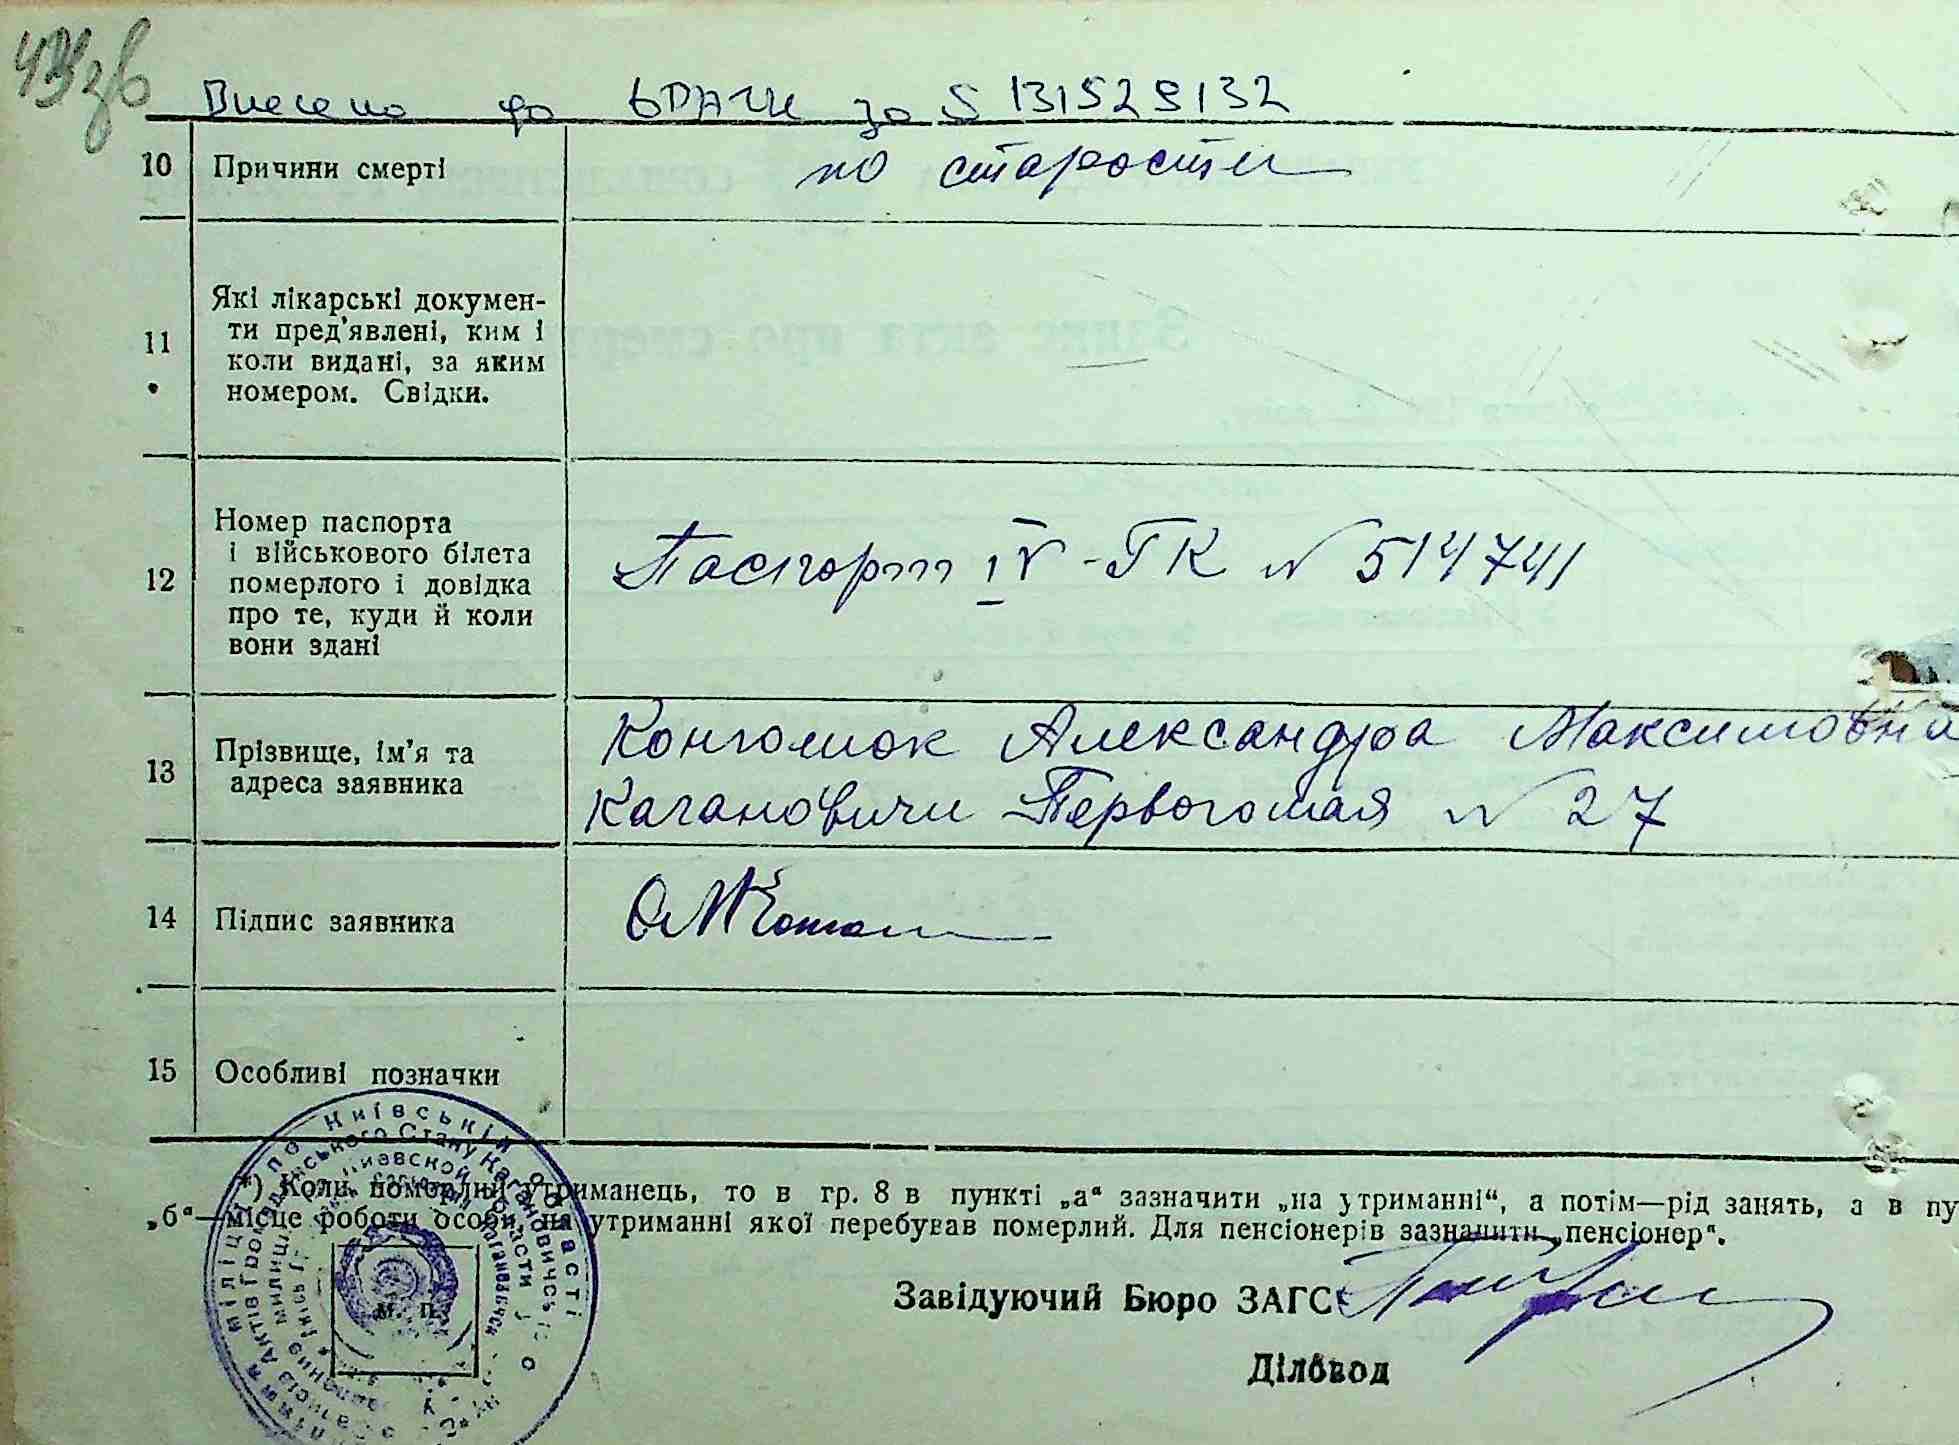 Внесено до ВДРАЦС за S 131529132
10 Причини смерті по старости
11 Які лікарські докумен-
ти пред'явлені, ким і
коли видані, за яким
номером. Свідки.
Номер паспорта
і військового білета
12 померлого і довідка Паспорт IV-ГК N 514741
про те, куди й коли
вони здані
13 Прізвище, ім'я та Александра Максимовна
адреса заявника Кагановичи Первогомая N 27
14 Підпис заявника
15 Особливі позначки
*) Коли померлий утриманець, то в гр. 8 в пункті „а“ зазначити „на утриманні“, а потім—рід занять, а в пу
„б“—місце роботи особи, на утриманні якої перебував померлий. Для пенсіонерів зазначити „пенсіонер“.
Завідуючий Бюро ЗАГС
Діловод
М. П.
по Київській області